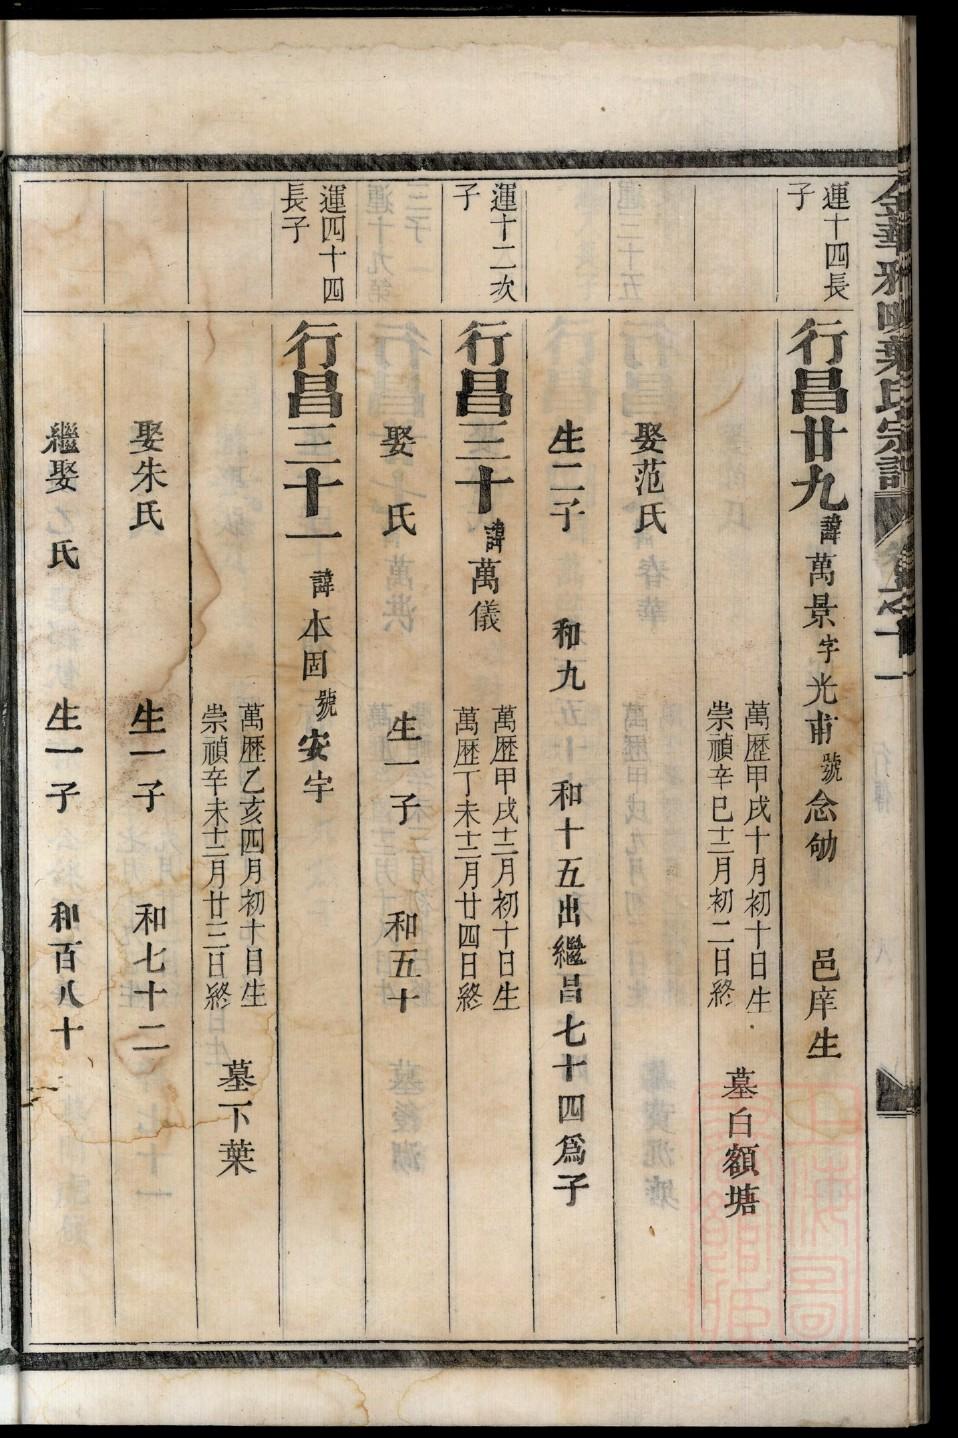 運十四長
子
行昌廿九諱萬景字光甫號念劬 邑庠生
萬歷甲戌十月初十日生
崇禎辛巳十二月初二日終
墓白額塘
娶范氏
生二子 和九 和十五出繼昌七十四爲子
運十二次
子
行昌三十諱萬儀
萬歷甲戌十二月初十日生
萬歷丁未十二月廿四日終
娶 氏 生一子 和五十
運四十四
長子
行昌三十一諱本固號安宇
萬歷乙亥四月初十日生
崇禎辛未十二月廿三日終
墓下葉
娶朱氏 生一子 和七十二
繼娶乙氏 生一子 和百八十